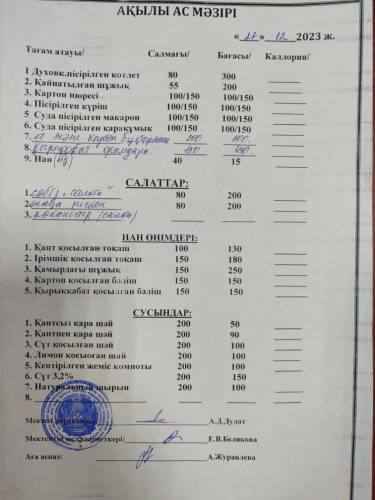 АҚЫЛЫ АС МӘЗІРІ
« 27 » 12 2023 ж.
Тағам атауы/ Салмағы/ Бағасы/ Каллория/
1 Духовк.пісірілген котлет 80 300
2. Қайнатылған шұжық 55 200
3. Картоп пюресі 100/150 100/150
4. Пісірілген күріш 100/150 100/150
5 Суда пісірілген макарон 100/150 100/150
6. Суда пісірілген қарақұмық 100/150 100/150
7. және картоп
8.
9. Нан 40 15
САЛАТТАР:
1. сәбіз " 80 200
2. 80 200
3. (салат)
НАН ӨНІМДЕРІ:
1. Қант қосылған тоқаш 100 130
2. Ірімшік қосылған тоқаш 150 180
3. Қамырдағы шұжық 150 250
4. Картоп қосылған бәліш 150 150
5. Қырыққабат қосылған бәліш 150 150
СУСЫНДАР:
1. Қантсыз қара шай 200 50
2. Қантпен қара шай 200 90
3. Сүт қосылған шай 200 100
4. Лимон қосылған шай 200 100
5. Кептірілген жеміс компоты 200 100
6. Сүт 3,2% 200 150
7. Натуральный шырын 200 100
8.
Мектеп директоры: А.Д.Дулат
Мектептің мед.қызметкері: Е.В.Белякова
Аға аспаз: А.Журавлева